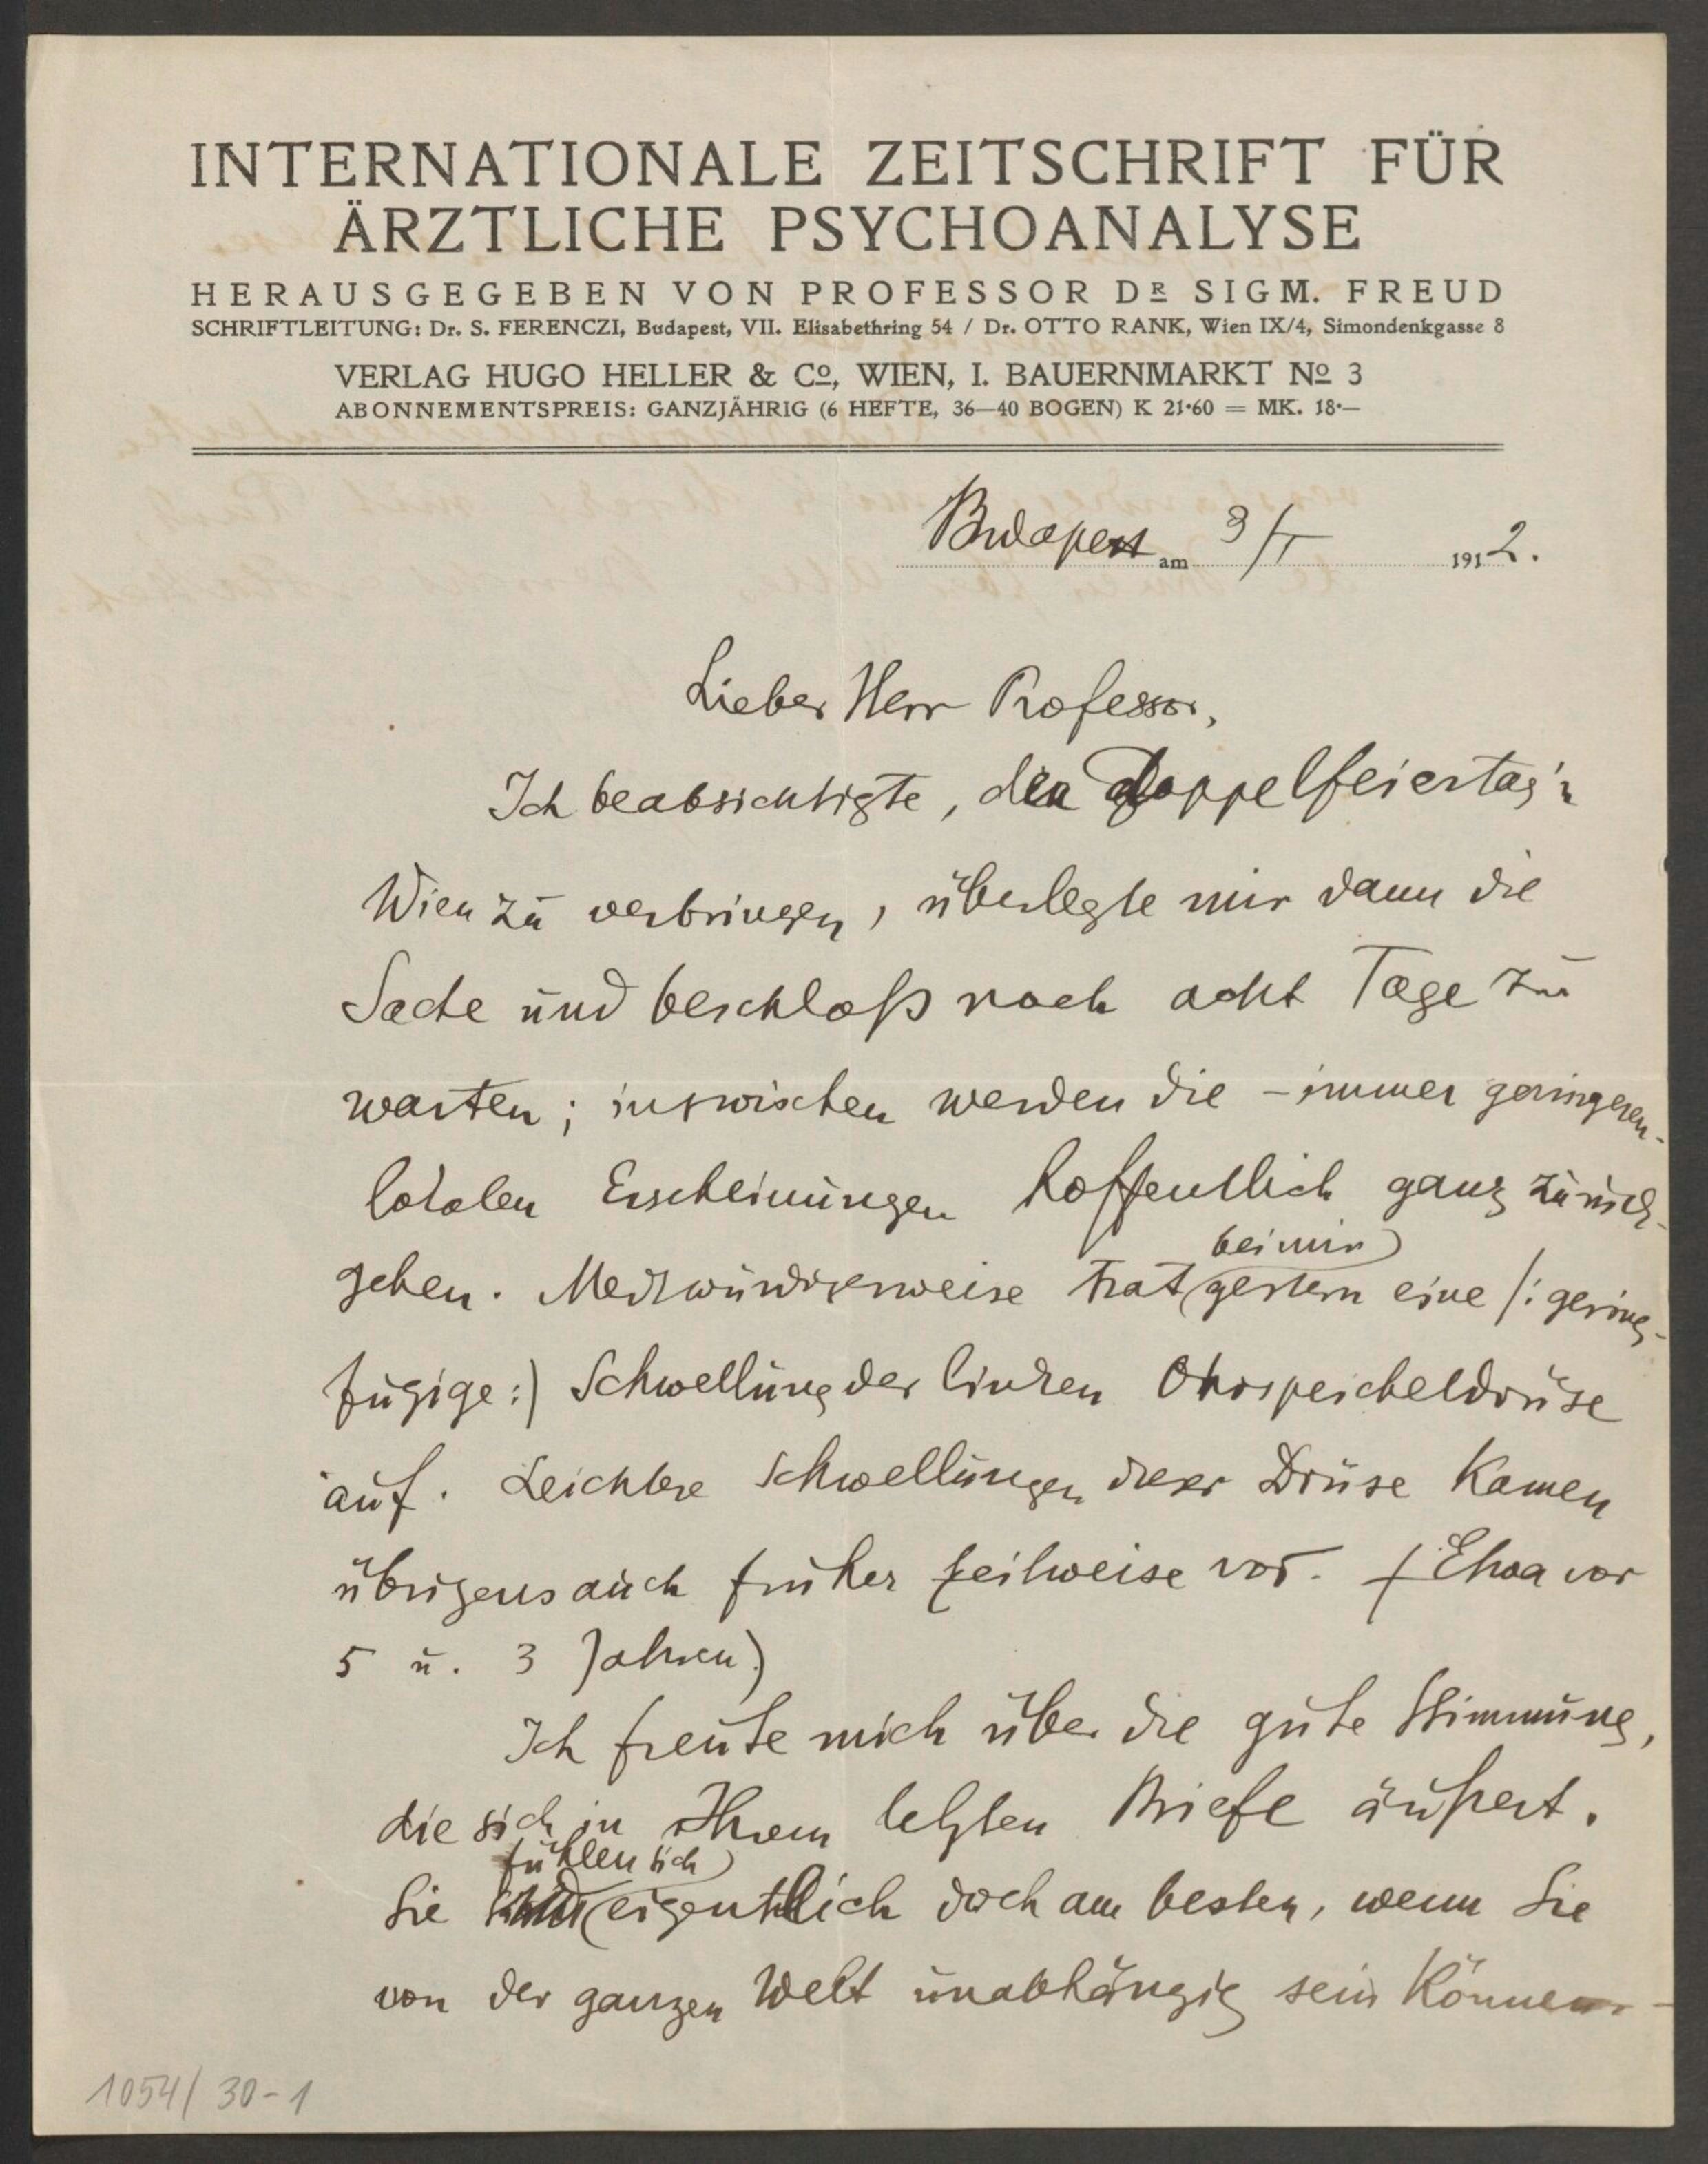 INTERNATIONALE ZEITSCHRIFT FÜR
ÄRZTLICHE PSYCHOANALYSE
HERAUSGEGEBEN VON PROFESSOR DR SIGM. FREUD
SCHRIFTLEITUNG: Dr. S. FERENCZI, Budapest, VII. Elisabethring 54 / Dr. OTTO RANK, Wien IX/4, Simondenkgasse 8
VERLAG HUGO HELLER & Co, WIEN, I. BAUERNMARKT No 3
ABONNEMENTSPREIS: GANZJÄHRIG (6 HEFTE, 36—40 BOGEN) K 21·60 = MK. 18·—
Budapest am 3/I 1912.
Lieber Herr Professor,
Ich beabsichtigte, den Doppelfeiertag in
Wien zu verbringen, überlegte mir dann die
Sache und beschloß noch acht Tage zu
warten; inzwischen werden die – immer geringeren –
lokalen Erscheinungen hoffentlich ganz zurück-
gehen. Merkwürdigerweise trat bei mir gestern eine /: gering-
fügige :) Schwellung der linken Ohrspeicheldrüse
auf. Leichtere Schwellungen dieser Drüse kamen
übrigens auch früher zeitweise vor. (Etwa vor
5 u. 3 Jahren.)
Ich freute mich über die gute Stimmung,
die sich in Ihrem letzten Briefe äußert.
Sie fühlen sich eigentlich doch am besten, wenn Sie
von der ganzen Welt unabhängig sein können
1054/30-1